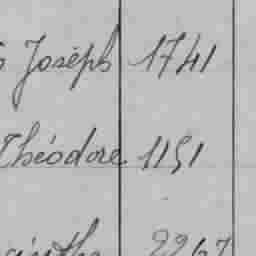 Joseph 1741
Théodore 1151
2267